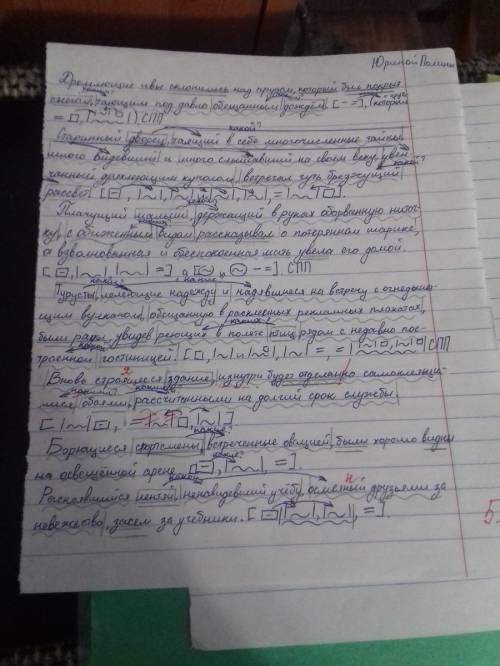 Юриной Полины
Дремлющие ивы склонились над прудом, который был покрыт
снегом, тающим под давно обещанным дождём. [- =], (который
= □, |~|) СПП
какой?
Старинный дворец, таящий в себе многочисленные тайны,
много видевший и много слышавший на своём веку, увен-
чанный дремлющим куполом, встречал чуть брезжущий
рассвет.
Плачущий малыш, держащий в руках оборванную ниточ-
ку, с обиженным видом рассказывал о потерянном шарике,
а взволнованная и обеспокоенная мать увела его домой.
СПП
Туристы, лелеющие надежду и надеявшиеся на встречу с огнедыша-
щим вулканом, обещанную в расклеенных рекламных плакатах,
были рады, увидев реющих в полёте птиц рядом с недавно пос-
троенной гостиницей. СПП
Вновь строящееся здание изнутри будет отделано самоклеящи-
мися обоями, рассчитанными на долгий срок службы.
какие?
Борющиеся спортсмены, встреченные овацией, были хорошо видны
на освещённой арене.
Раскаявшийся лентяй, ненавидевший учёбу, осмеянный друзьями за
невежество, засел за учебники.
5